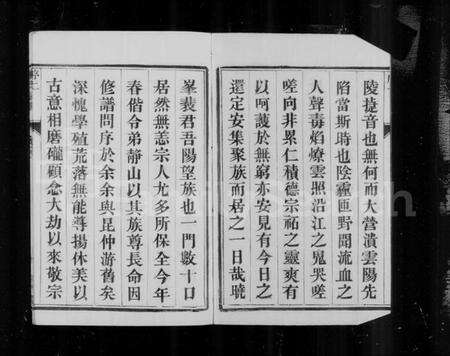 陵捷音也無何而大營潰雲陽先
陷當斯時也陰霾匝野聞流血之
人聲毒焰燎雲照沿江之鬼哭嗟
嗟向非累仁積德宗祏之靈爽有
以呵護於無窮亦安見有今日之
還定安集聚族而居之一日哉曉
峯裴君吾陽望族也一門數十口
居然無恙宗人尤多所保全今年
春偕令弟靜山以其族尊長命因
修譜問序於余余與昆仲游舊矣
深愧學殖荒落無能導揚休美以
古意相磨礲顧念大劫以來敬宗